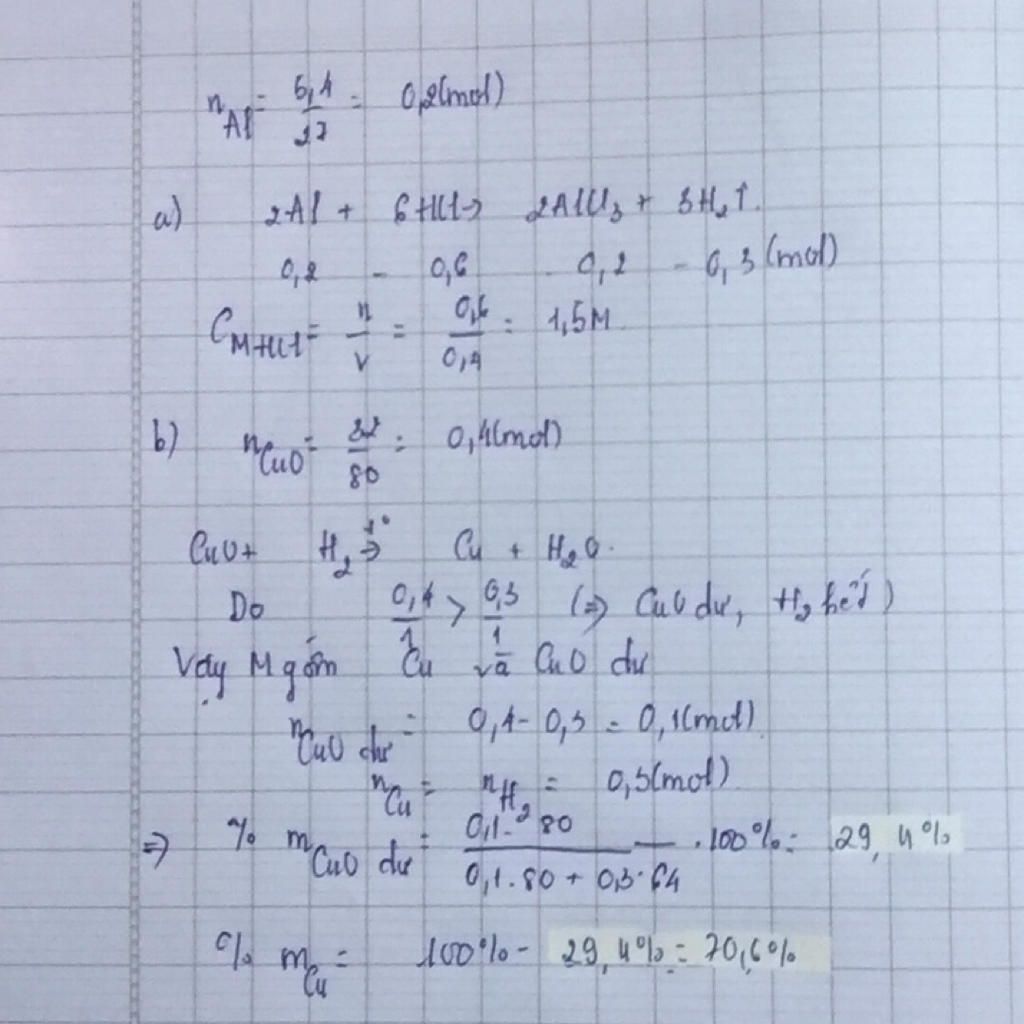 n_Al = 5,4/27 = 0,2(mol)
a) 2Al + 6HCl → 2AlCl₃ + 3H₂↑.
0,2 - 0,6 - 0,2 - 0,3 (mol)
C_M HCl = n/V = 0,6/0,4 = 1,5M
b) n_CuO = 32/80 = 0,4(mol)
CuO + H₂ →(t°) Cu + H₂O.
Do 0,4/1 > 0,3/1 (=> CuO dư, H₂ hết)
Vậy M gồm Cu và CuO dư
n_CuO dư = 0,4 - 0,3 = 0,1(mol)
n_Cu = n_H₂ = 0,3(mol)
=> % m_CuO dư = (0,1 . 80)/(0,1 . 80 + 0,3 . 64) . 100% = 29,4%
% m_Cu = 100% - 29,4% = 70,6%